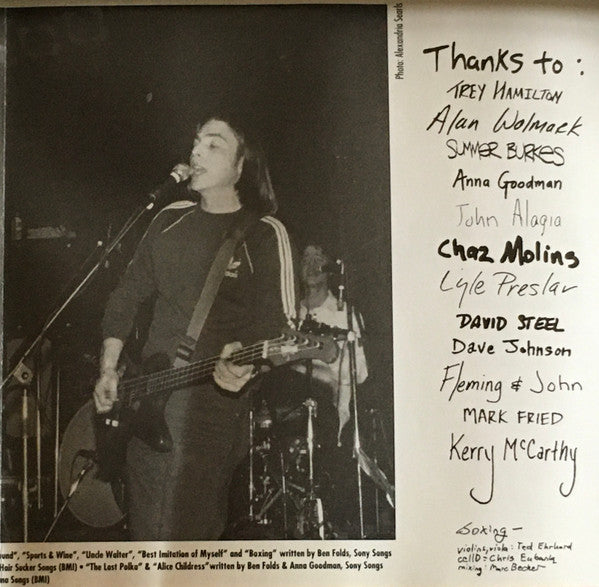 Photo: Alexandria Searls
Thanks to :
TREY HAMILTON
Alan Wolmack
SUMMER BURKES
Anna Goodman
John Alagia
Chaz Molins
Lyle Preslar
DAVID STEEL
Dave Johnson
Fleming & John
MARK FRIED
Kerry McCarthy
Boxing -
violin, viola: Ted Ehrhard
cello: Chris Eubank
mixing: Marc Becker
", "Sports & Wine", "Uncle Walter", "Best Imitation of Myself" and "Boxing" written by Ben Folds, Sony Songs
Hair Sucker Songs (BMI) • "The Last Polka" & "Alice Childress" written by Ben Folds & Anna Goodman, Sony Songs
Songs (BMI)